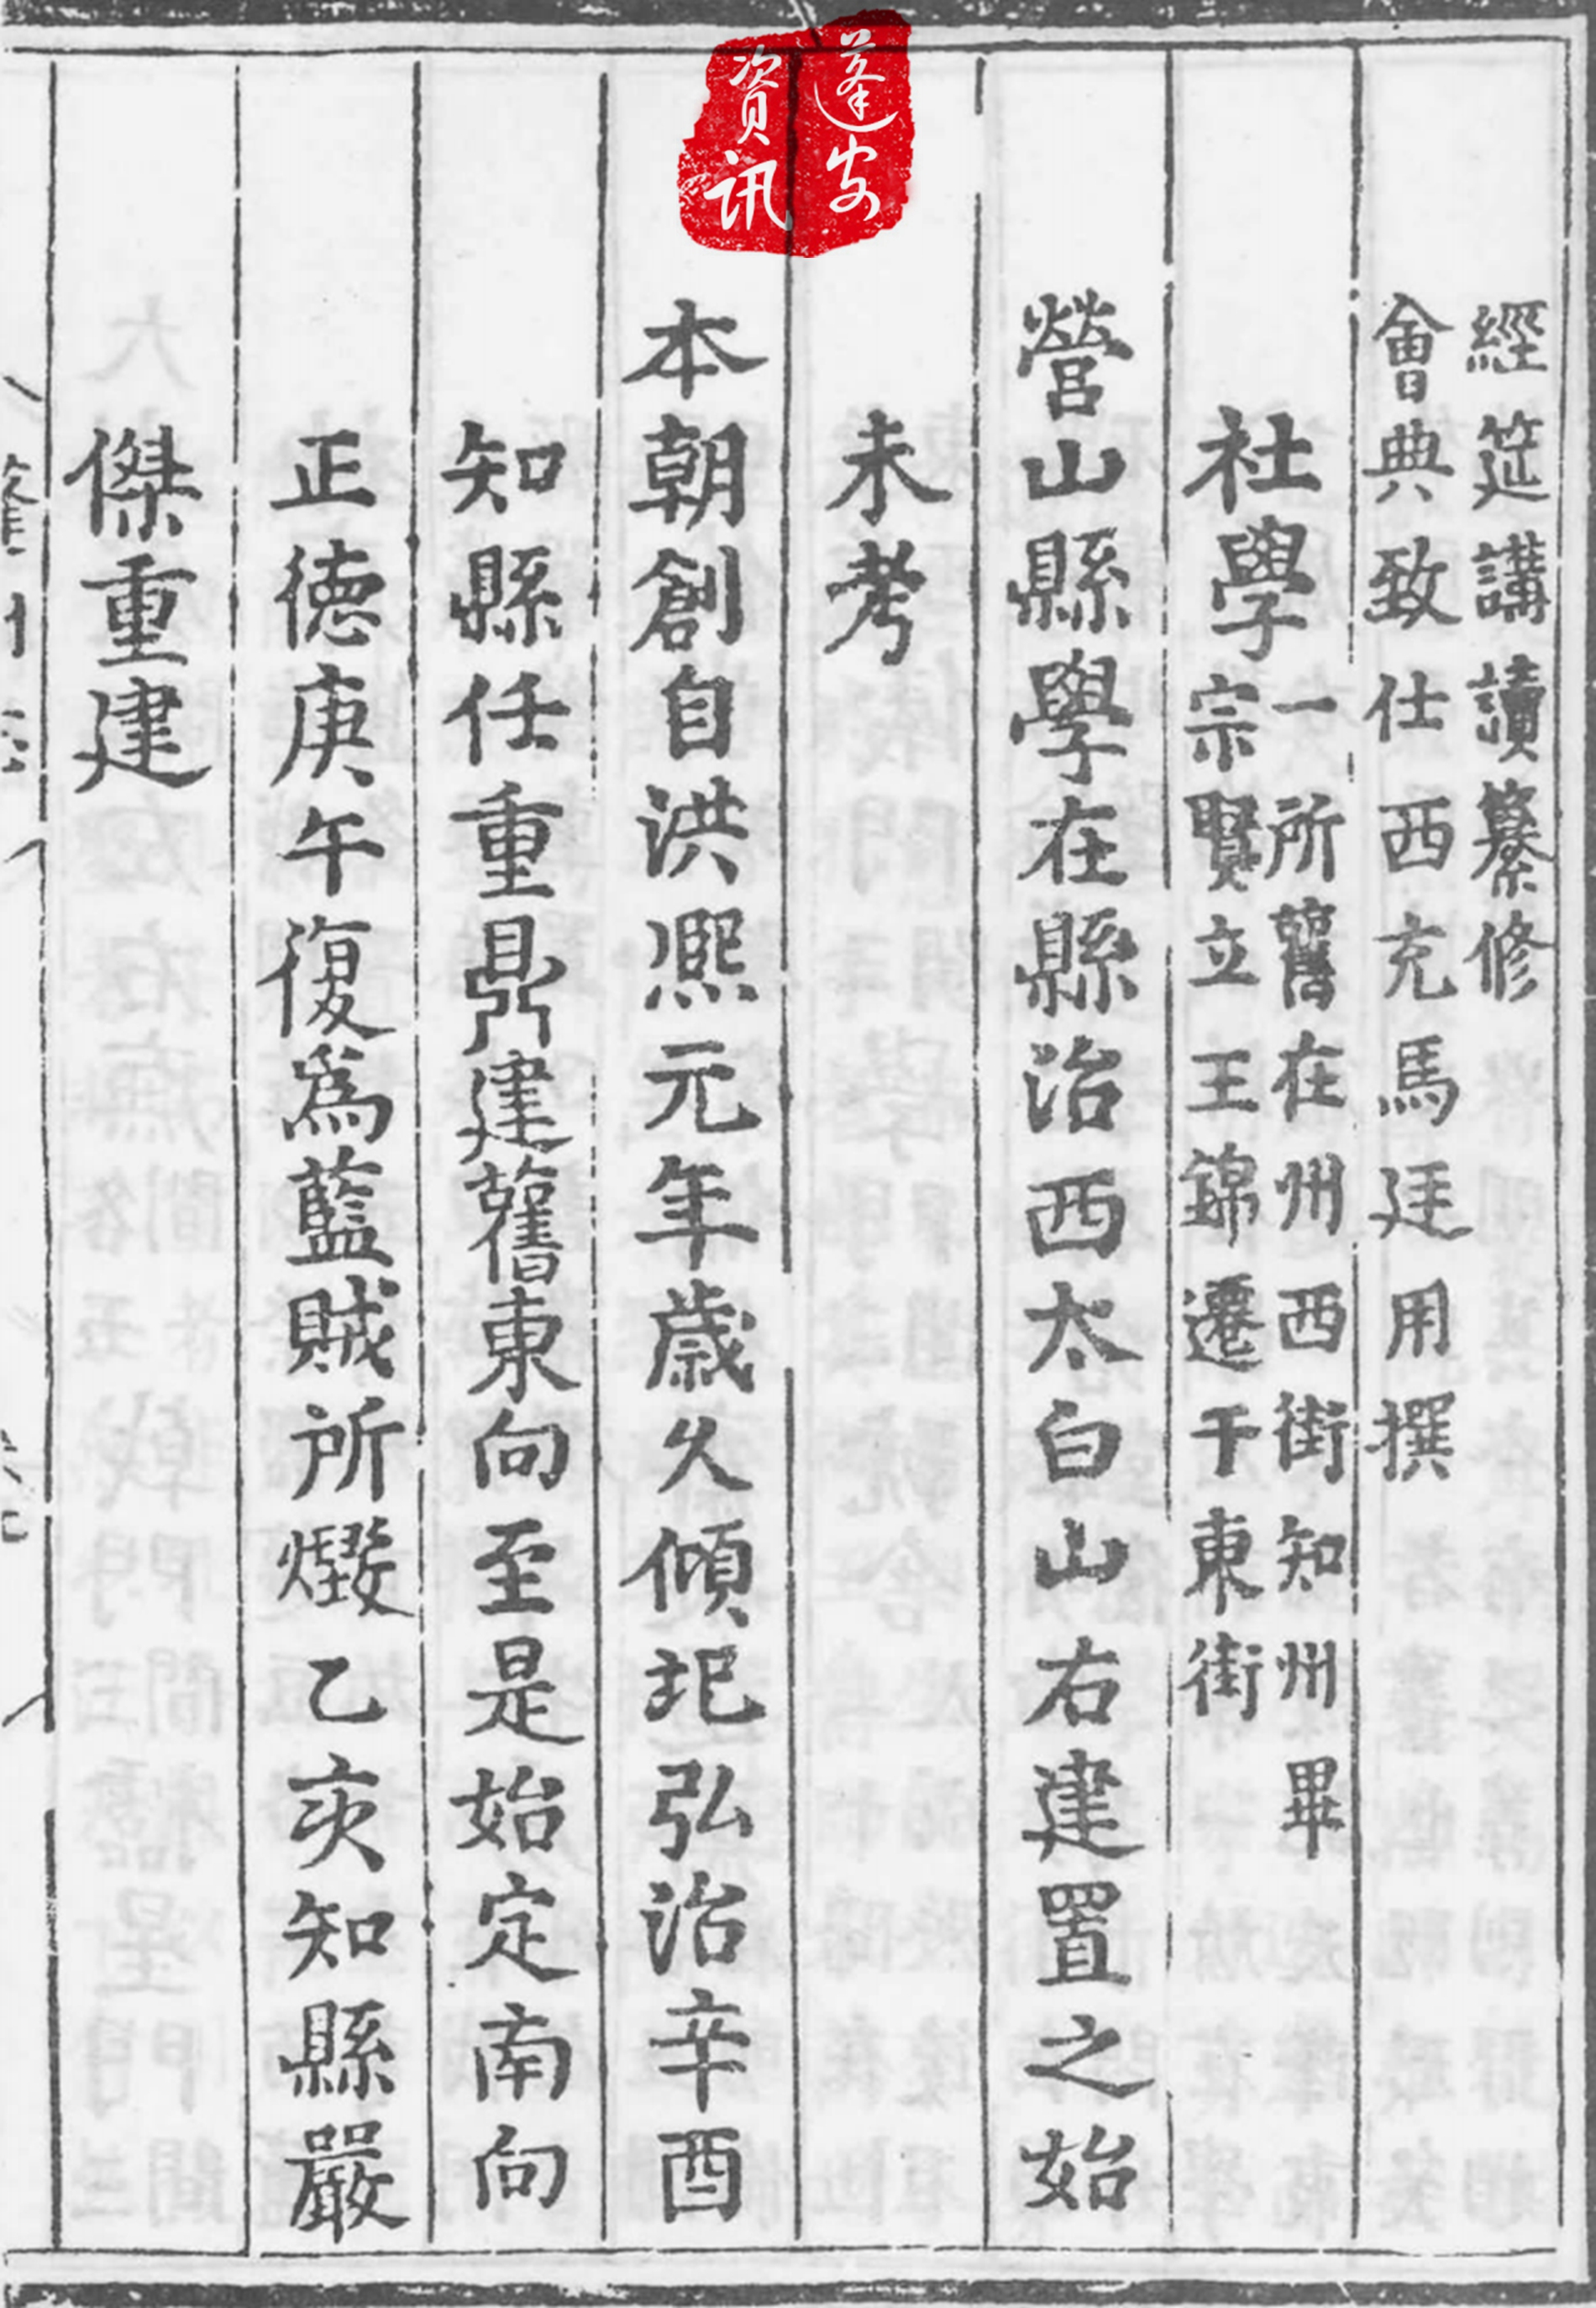 蓬安
資訊
經筵講讀纂修
會典致仕西充馬廷用撰
社學一所舊在州西街知州畢
宗賢立王錦遷于東街
營山縣學在縣治西太白山右建置之始
未考
本朝創自洪熈元年歲久傾圮弘治辛酉
知縣任重鼎建舊東向至是始定南向
正德庚午復爲藍賊所燬乙亥知縣嚴
傑重建